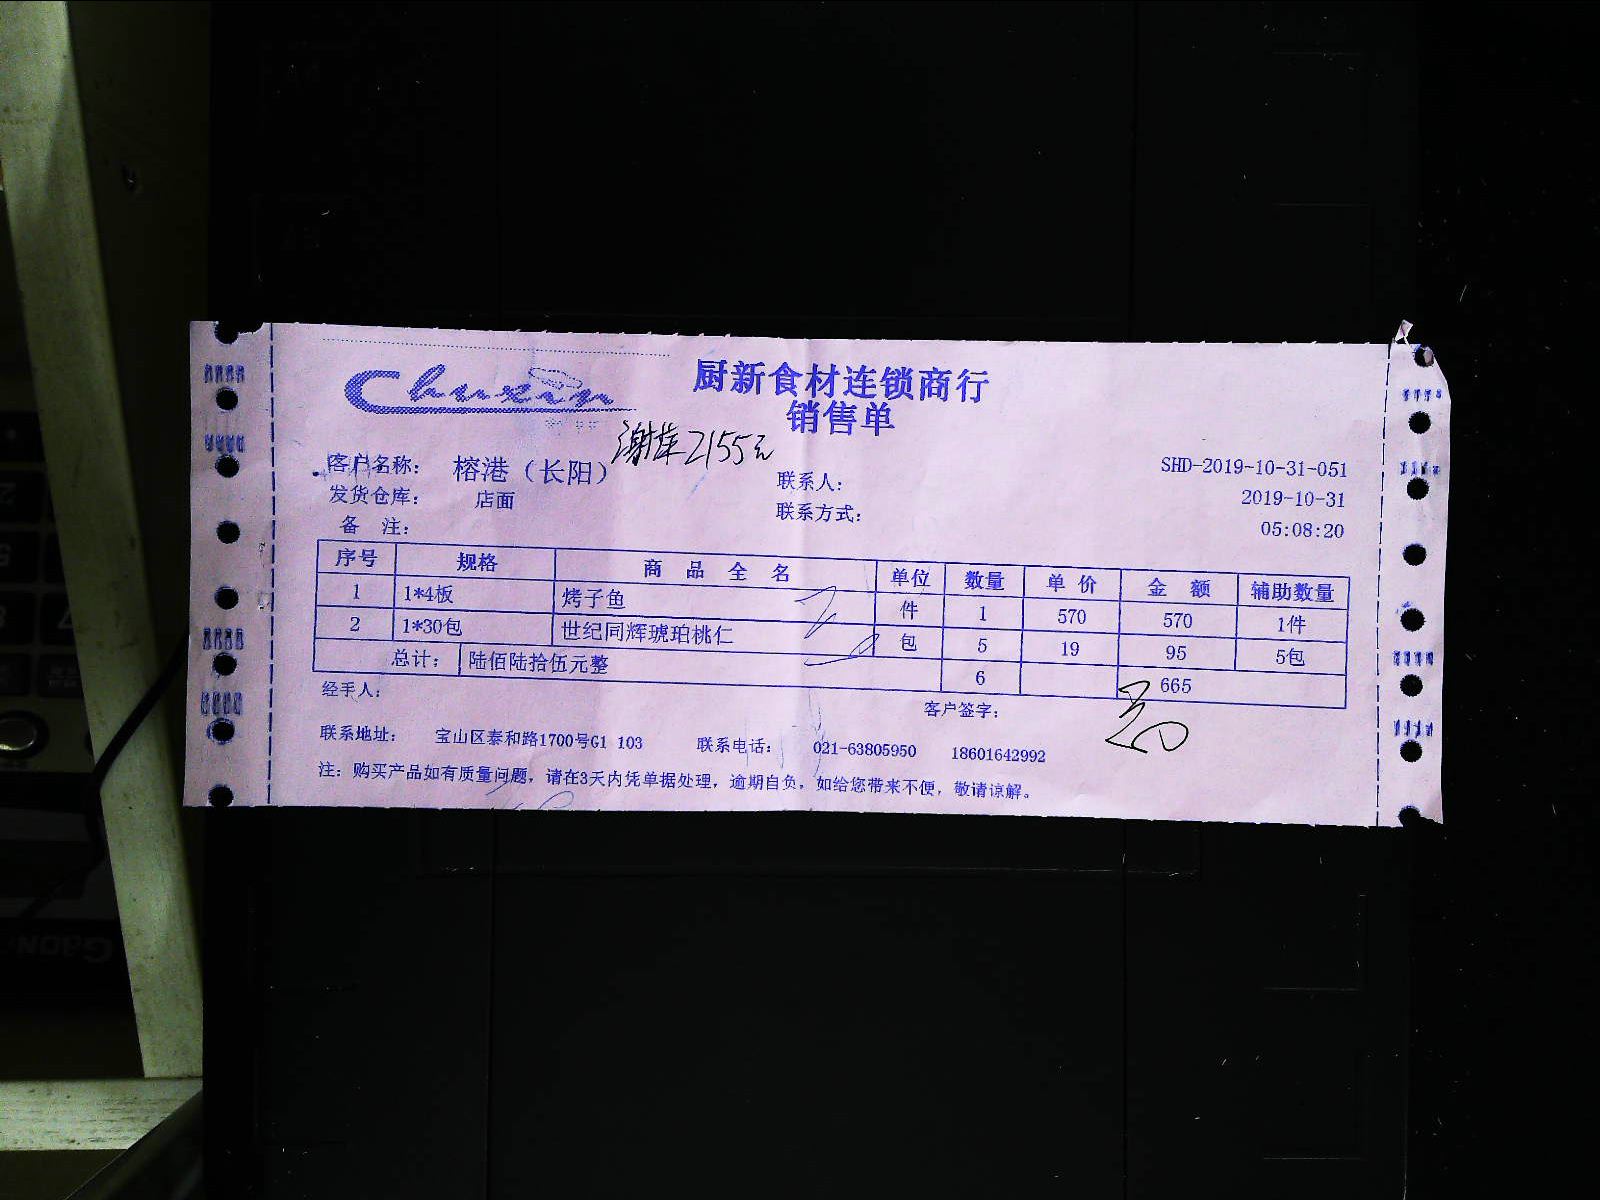 Chuxin
厨新食材连锁商行
销售单
谢萍2155元
客户名称: 榕港（长阳） 联系人: SHD-2019-10-31-051
发货仓库: 店面 联系方式: 2019-10-31
备 注: 05:08:20
序号 规格 商 品 全 名 单位 数量 单 价 金 额 辅助数量
1 1*4板 烤子鱼 件 1 570 570 1件
2 1*30包 世纪同辉琥珀桃仁 包 5 19 95 5包
总计: 陆佰陆拾伍元整 6 665
经手人: 客户签字:
联系地址: 宝山区泰和路1700号G1 103 联系电话: 021-63805950 18601642992
注: 购买产品如有质量问题, 请在3天内凭单据处理, 逾期自负, 如给您带来不便, 敬请谅解。